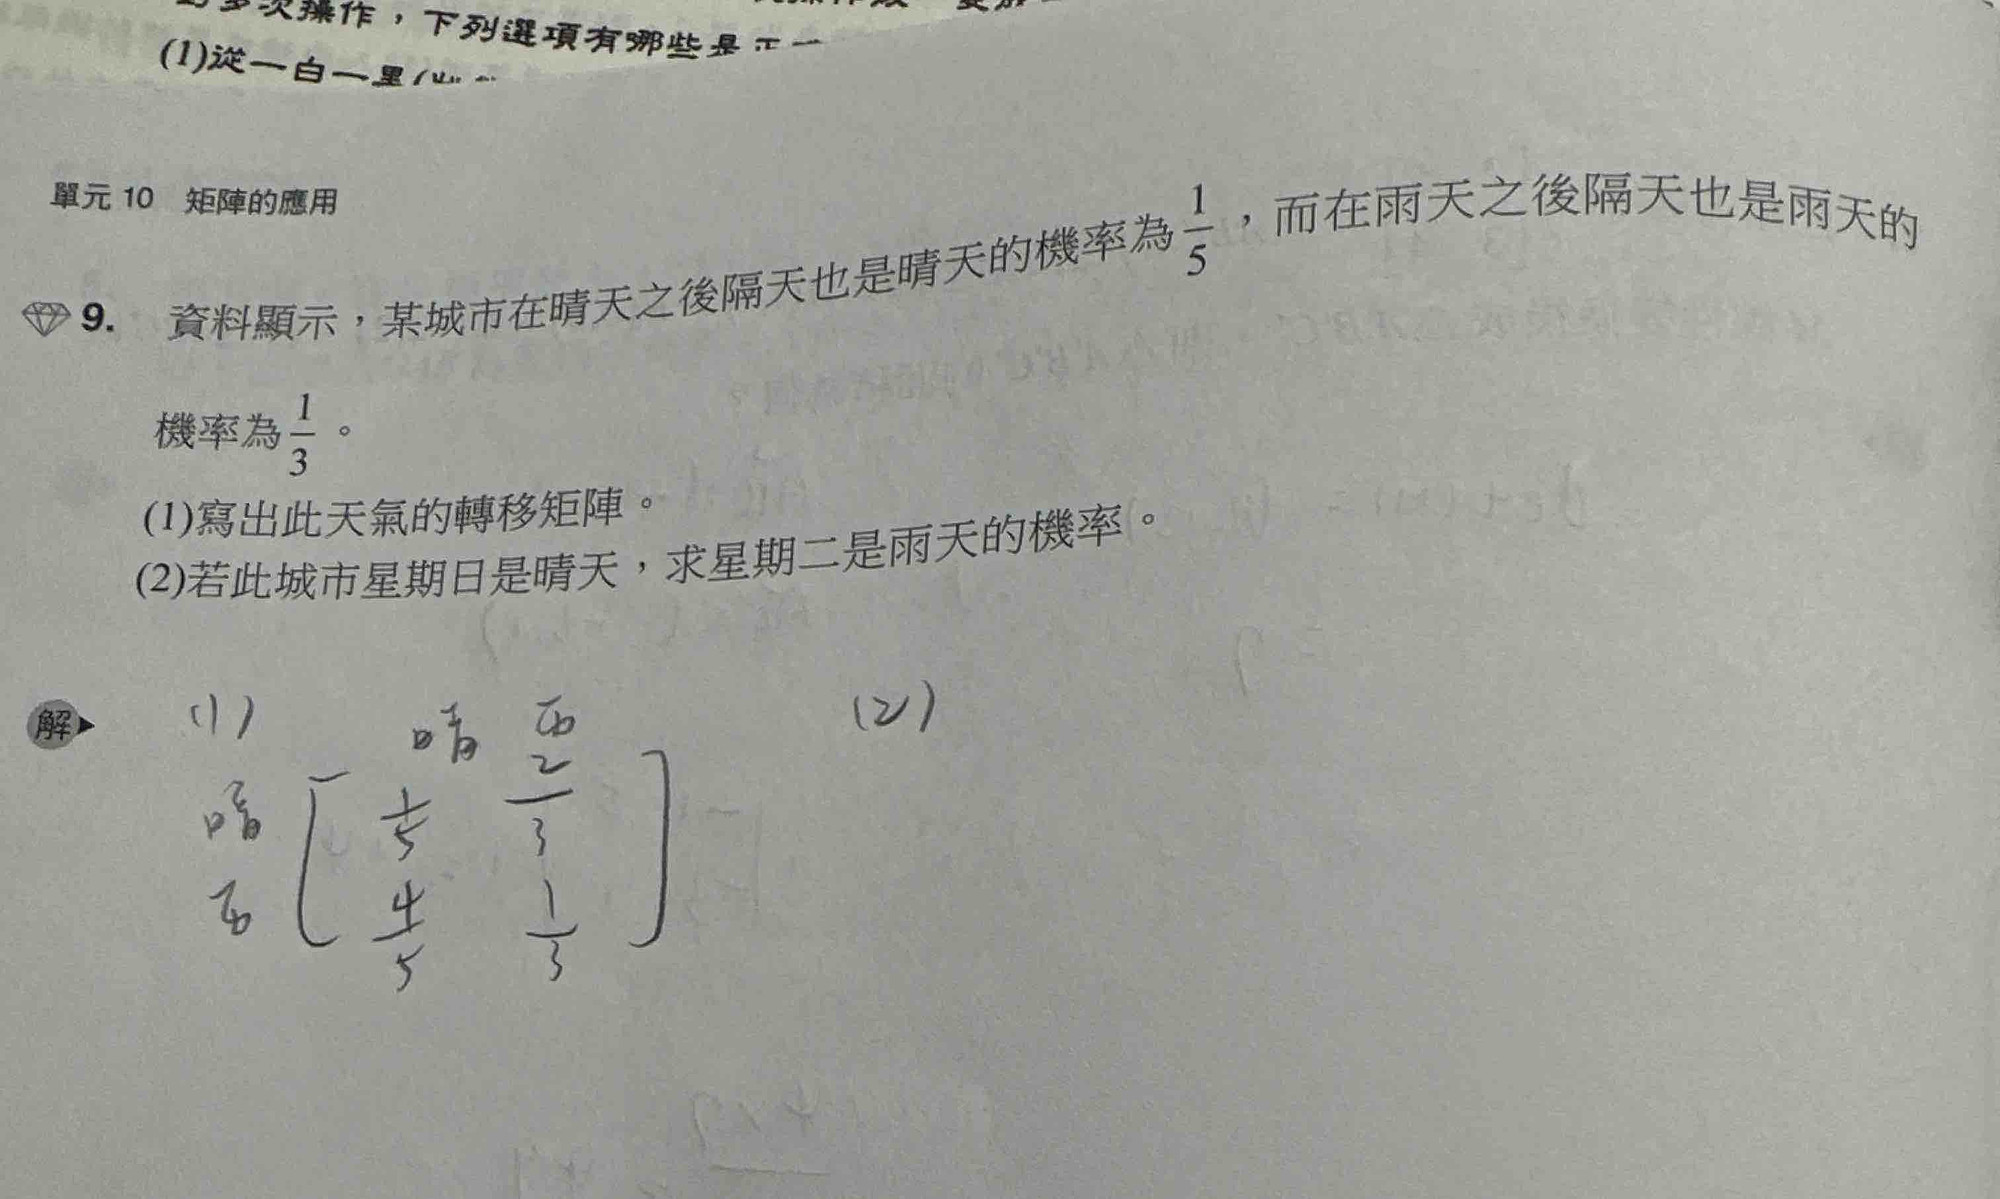 多次操作,下列選項有哪些是正
(1)從一白一黑(
單元 10 矩陣的應用
9. 資料顯示,某城市在晴天之後隔天也是晴天的機率為 1/5,而在雨天之後隔天也是雨天的
機率為 1/3。
(1)寫出此天氣的轉移矩陣。
(2)若此城市星期日是晴天,求星期二是雨天的機率。
解 (1) (2)
晴 雨
晴 [ 1/5 2/3 ]
雨 [ 4/5 1/3 ]